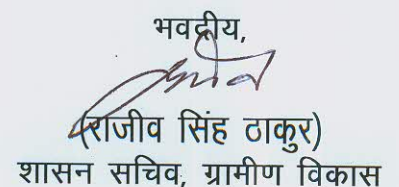 भवदीय,
(राजीव सिंह ठाकुर)
शासन सचिव, ग्रामीण विकास